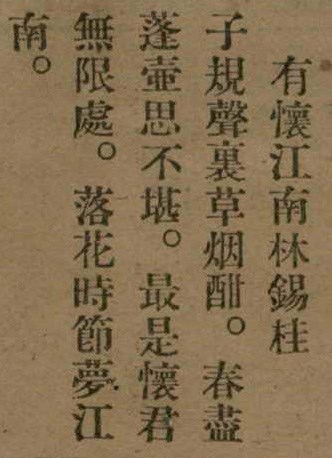 有懷江南林錫桂
子規聲裏草烟酣。春盡
蓬壺思不堪。最是懷君
無限處。落花時節夢江
南。